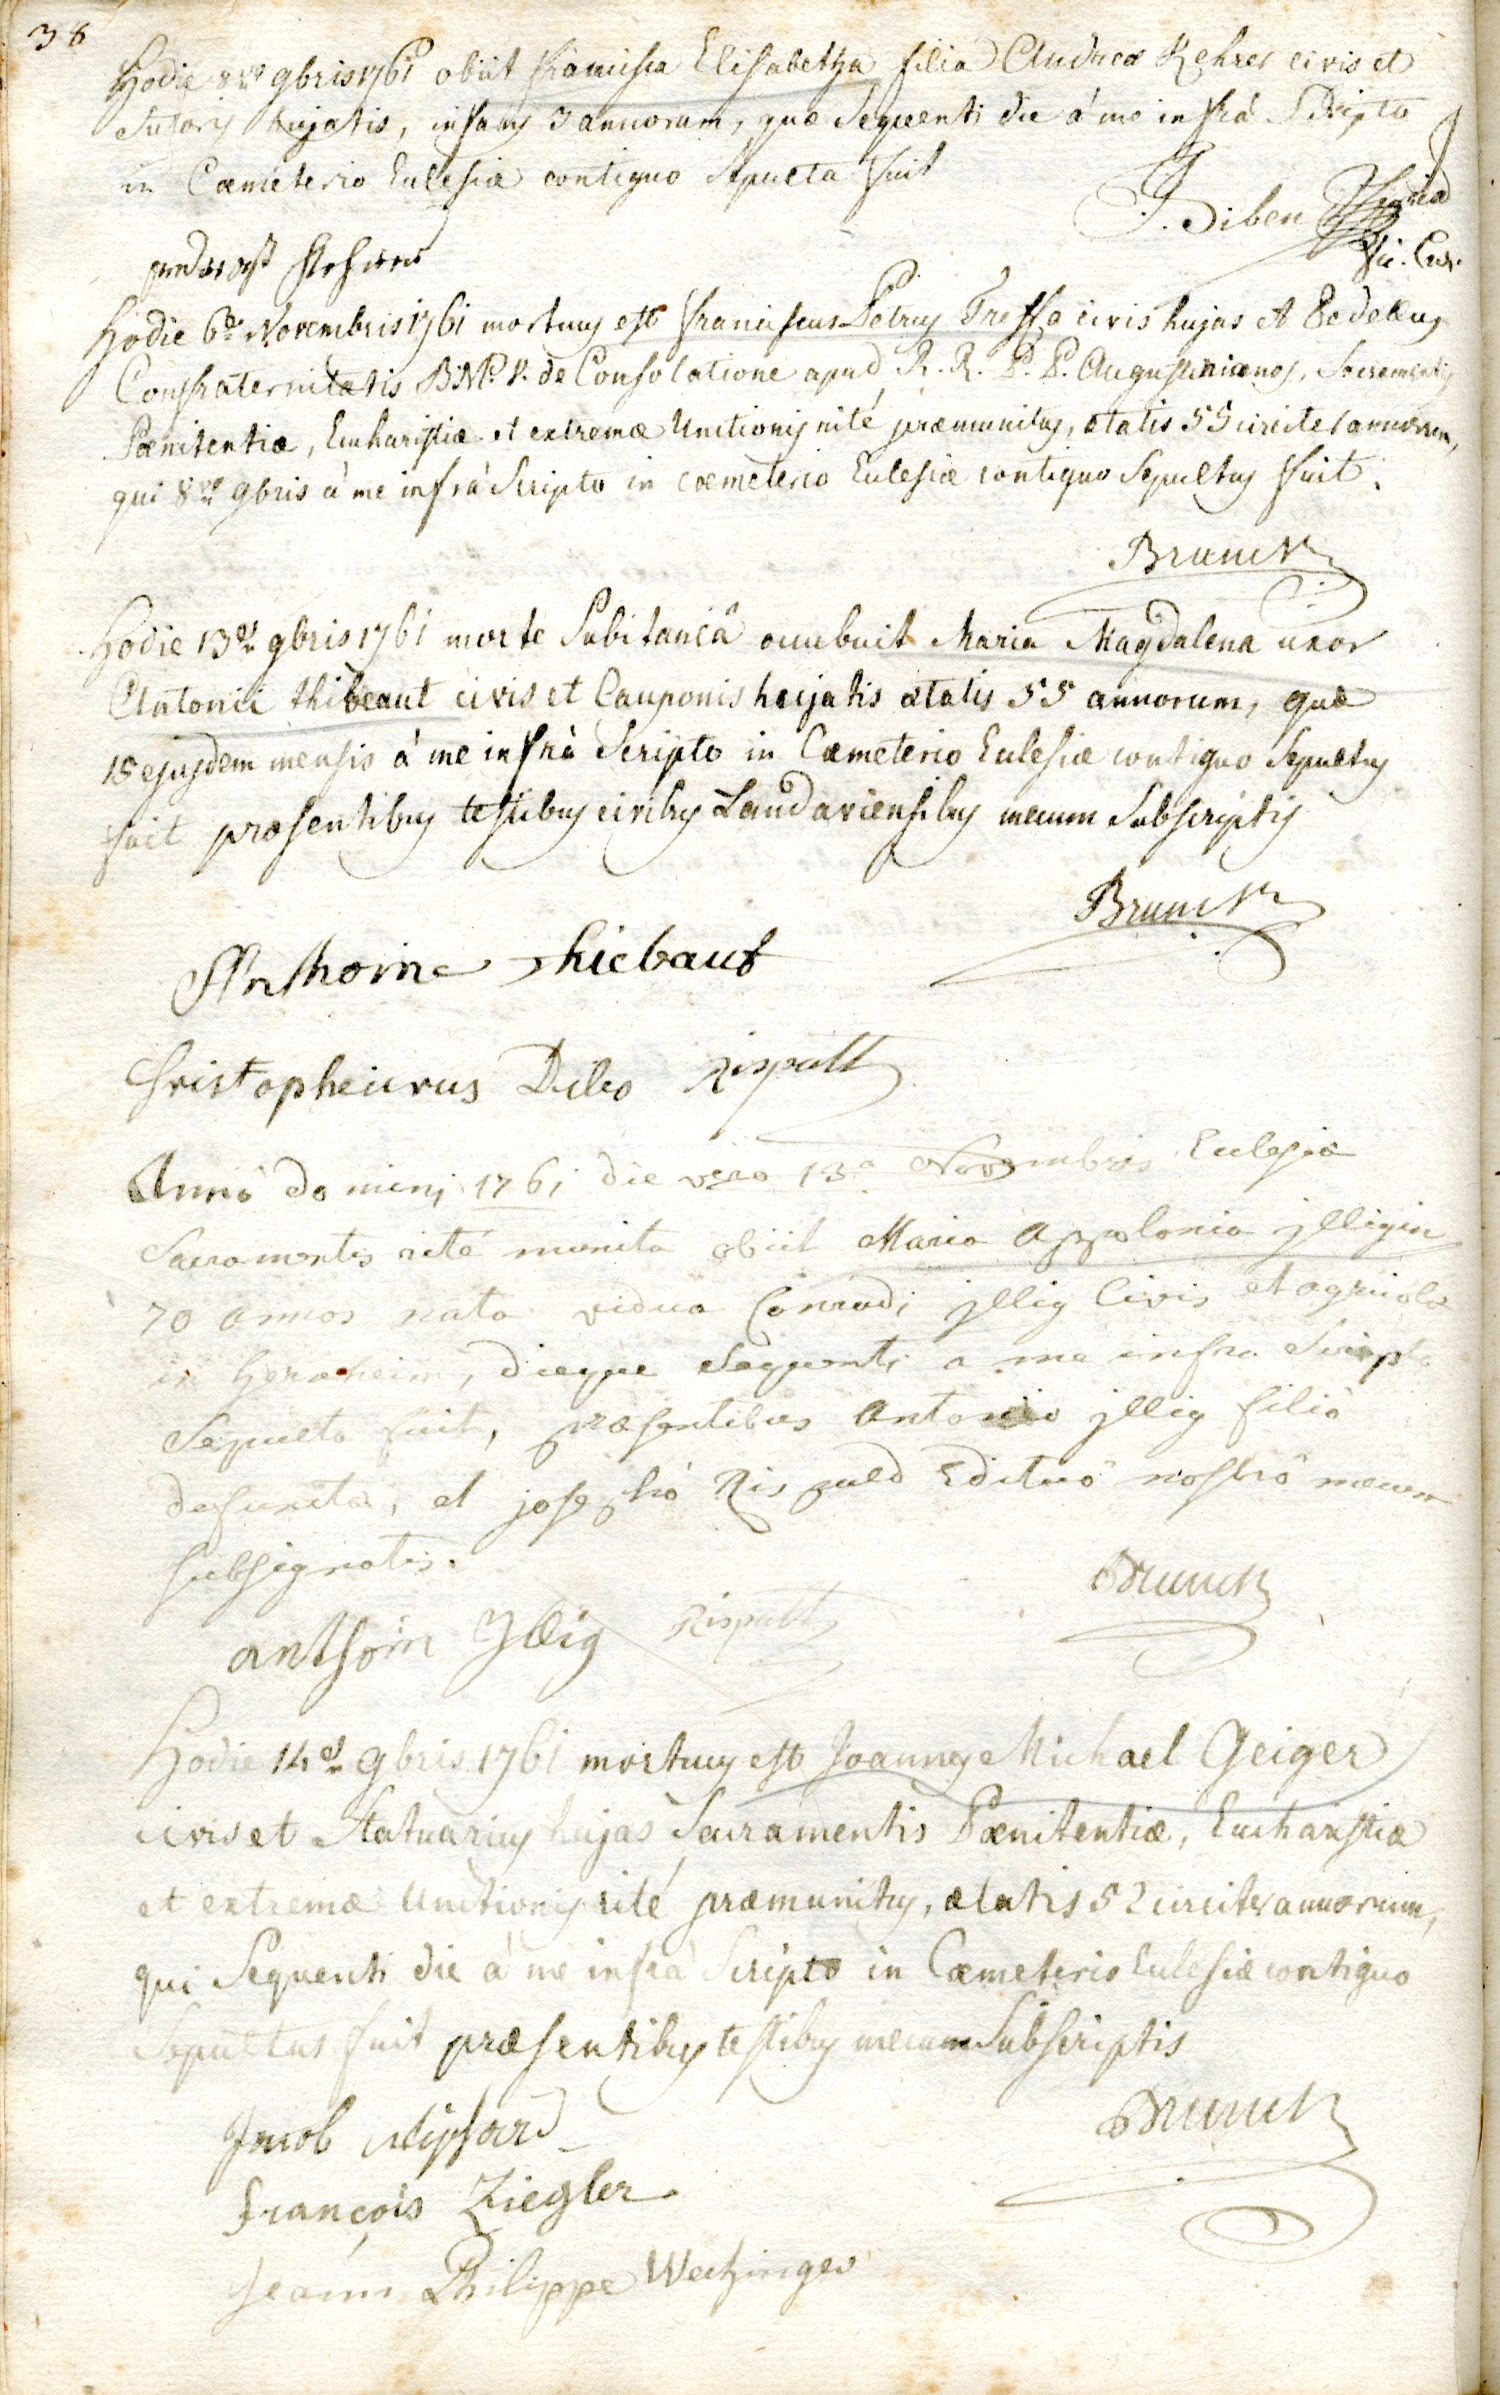 38
Hodie 8va 9bris 1761 obiit francisca Elisabetha filia Andreæ Kehrer civis et
Sutoris hujatis, infans 3 annorum, quæ Sequenti die à me infrà Scripto
in Cæmeterio Ecclesiæ contiguo Sepulta fuit
J. Siben
Vic. Cur.
Hodie 6ta Novembris 1761 mortuus est franciscus Petrus Treffe civis hujas et Bedellus
Confraternitatis B.M.V. de Consolatione apud R. R. P. P. Augustinianos, Sacramentis
Pœnitentiæ, Eucharistiæ et extremæ Unctionis rité præmunitus, ætatis 55 circiter annorum,
qui 8va 9bris à me infrà Scripto in cœmeterio Ecclesiæ contiguo Sepultus fuit.
Brunck
Hodie 13a 9bris 1761 morte Subitaneâ occubuit Maria Magdalena uxor
Antonii thibeaut civis et Cauponis hujatis ætatis 55 annorum, quæ
15 ejusdem mensis à me infrà Scripto in Cæmeterio Ecclesiæ contiguo Sepultus
fuit præsentibus testibus civibus Landaviensibus mecum Subscriptis
Brunck
Anthoine Thiebaut
Rispall
Anno domini 1761 die vero 13a Novembris Ecclesiæ
Sacramentis rité munita obiit Maria Appolonia jlligin
70 annos nata vidua Conradi jllig Civis et agricolæ
in , dieque Sequenti a me infra Scripto
Sepulta fuit, præsentibus Antonio jllig filiô
defunctæ, et josephô Rispald Edituô nostrô mecum
subsignatis.
Brunck
anthoin Jllig Rispall
Hodie 14a 9bris 1761 mortuus est Joannes Michael Geiger
civis et Statuarius hujas Sacramentis Pœnitentiæ, Eucharistiæ
et extremæ Unctionis rité præmunitus, ætatis 52 circiter annorum,
qui Sequenti die à me infrà Scripto in Cæmeterio Ecclesiæ contiguo
Sepultus fuit præsentibus testibus mecum Subscriptis
Brunck
Jacob
françois Ziegler
Jeann Philippe Weckinger